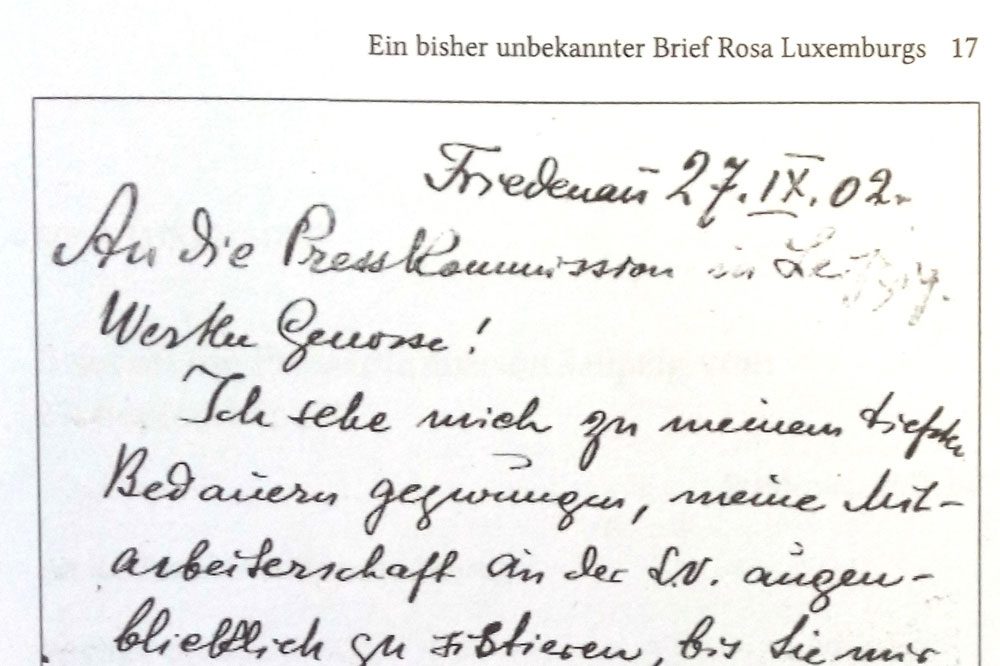 Ein bisher unbekannter Brief Rosa Luxemburgs 17
Friedenau 27.IX.02.
An die Presskommission in Leipzig.
Werthe Genosse!
Ich sehe mich zu meinem tiefsten
Bedauern gezwungen, meine Mit-
arbeiterschaft an der L.V. augen-
blicklich zu sistieren, bis Sie mir